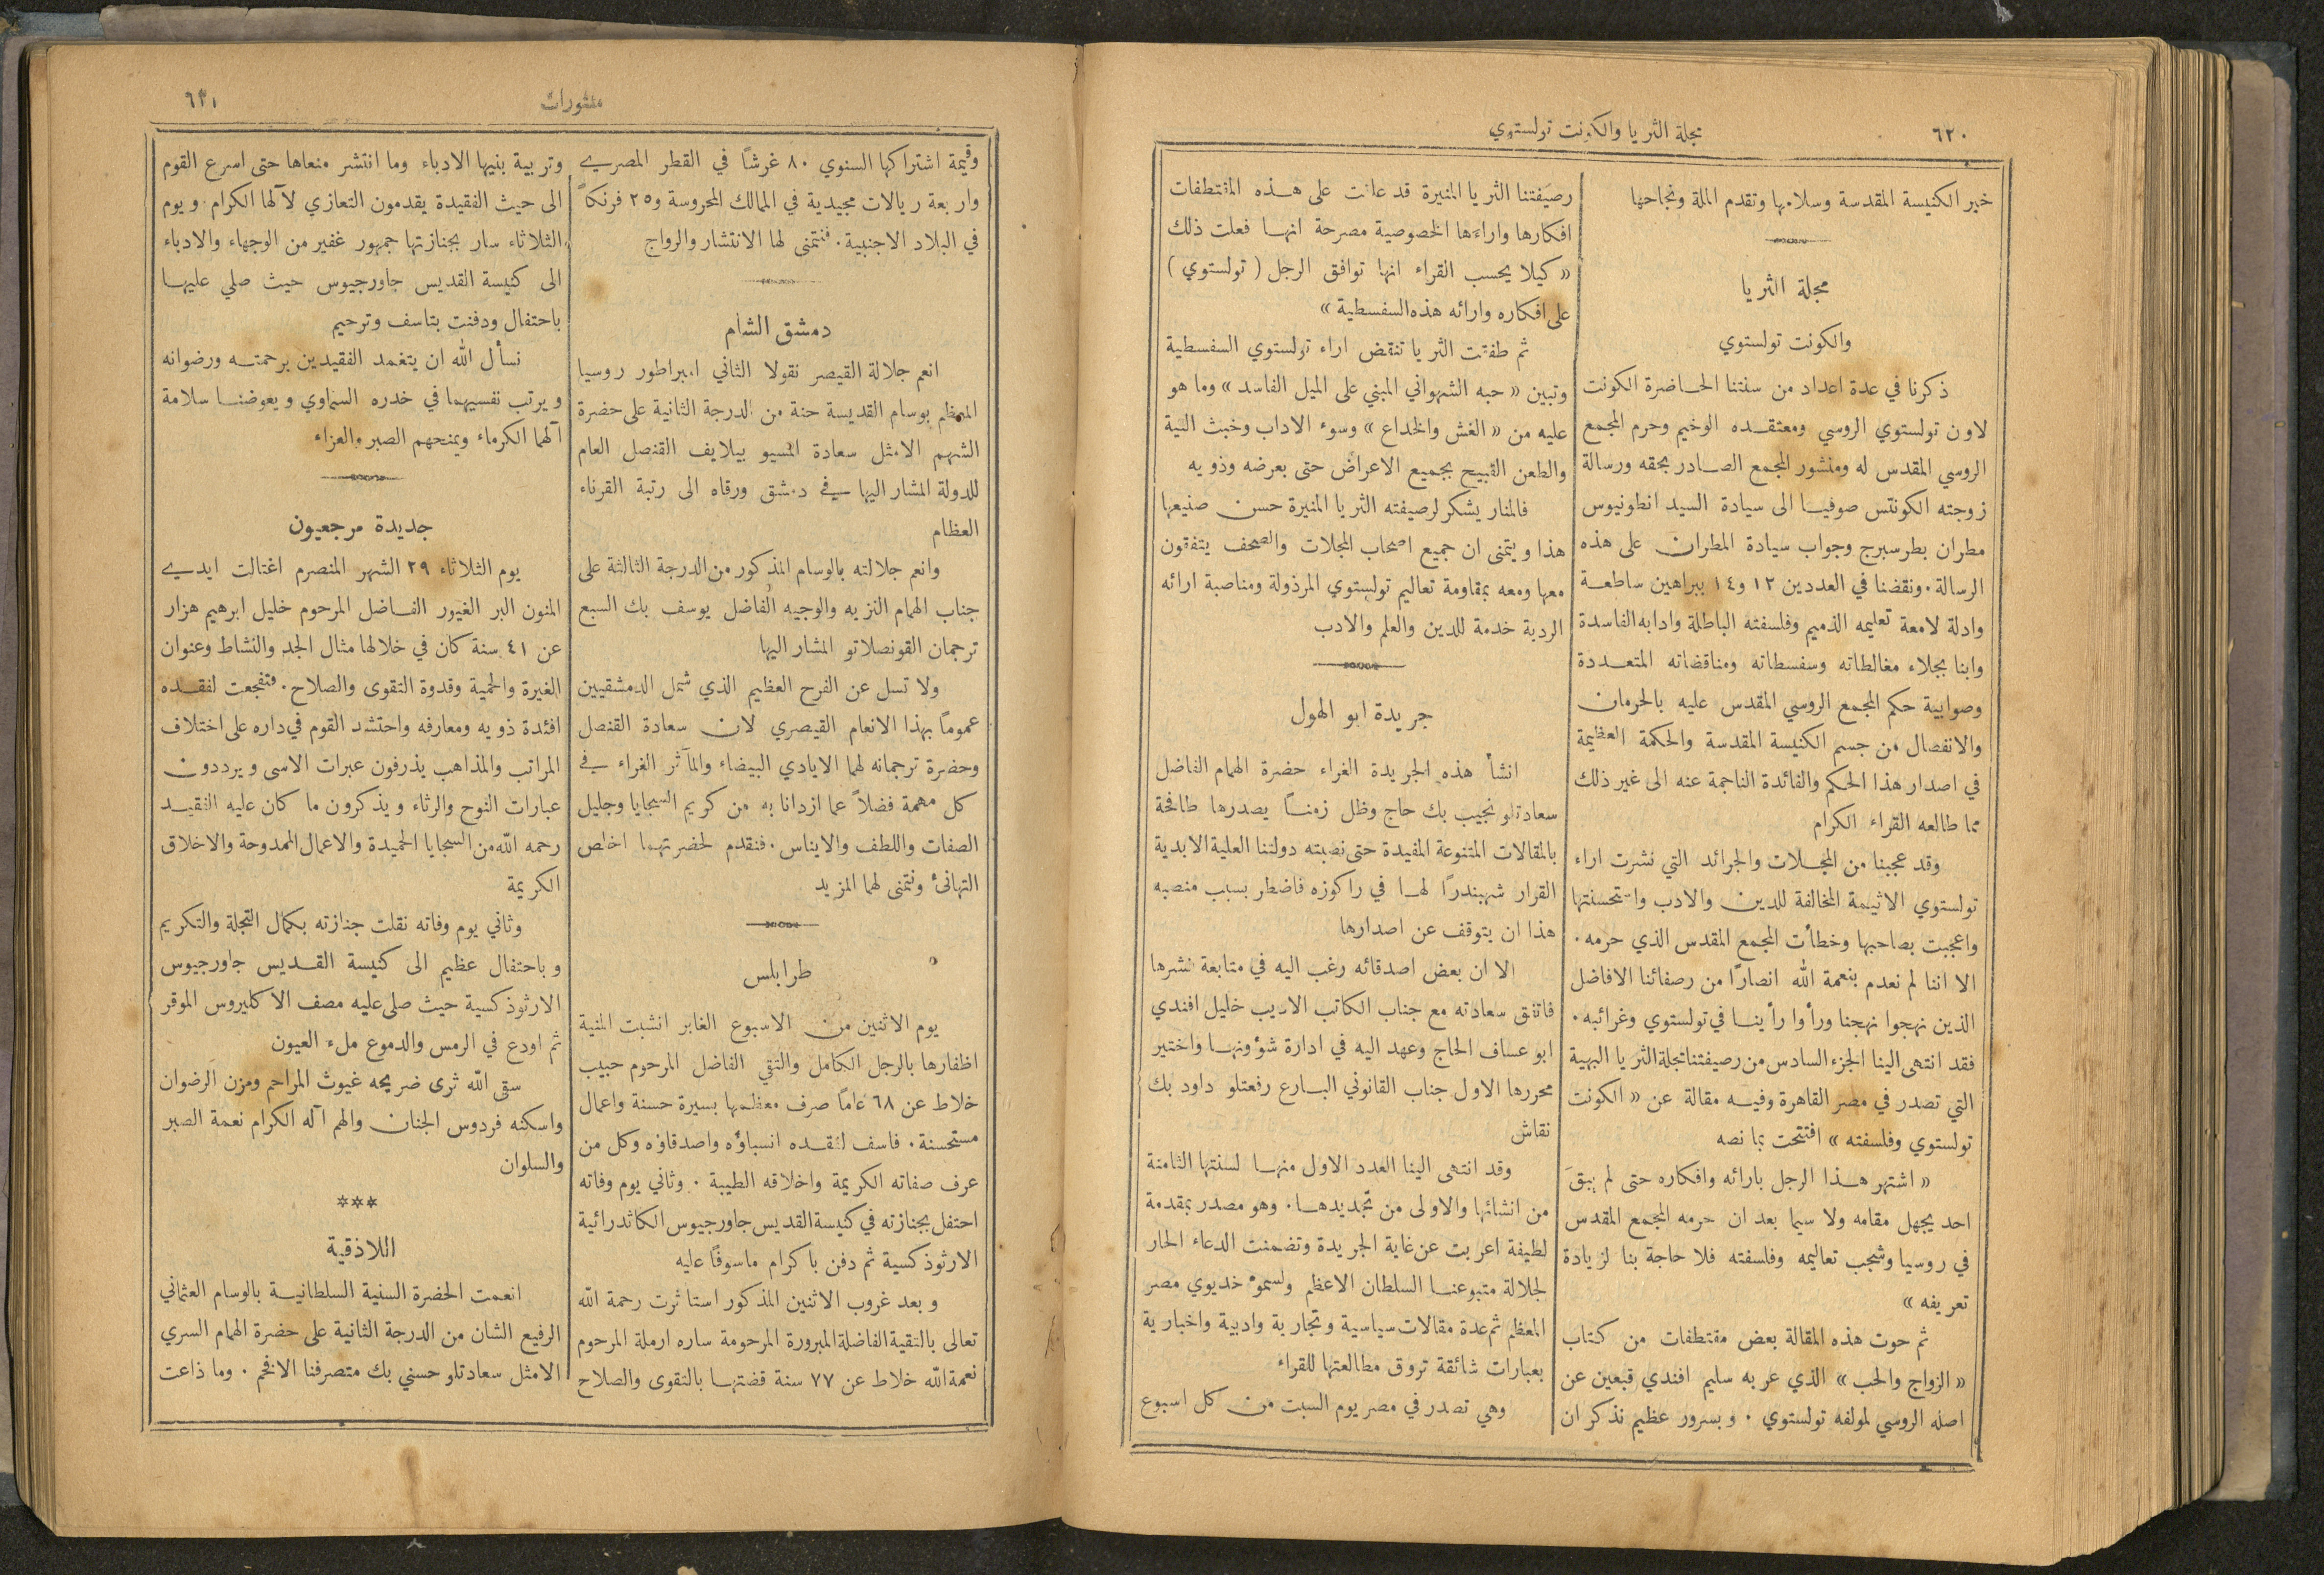 ٦٢٠
مجلة الثريا والكونت تولستوي
خير الكنيسة المقدسة وسلامها وتقدم الملة ونجاحها
مجلة الثريا
والكونت تولستوي
ذكرنا في عدة اعداد من سنتنا الحاضرة الكونت
لاون تولستوي الروسي ومعتقده الوخيم وحرم المجمع
الروسي المقدس له ومنشور المجمع الصادر بحقه ورسالة
زوجته الكونتس صوفيا الى سيادة السيد انطونيوس
مطران بطرسبرج وجواب سيادة المطران على هذه
الرسالة . ونقضنا في العددين ١٢ و١٤ ببراهين ساطعة
وادلة لامعة تعليمه الذميم وفلسفته الباطلة وادابه الفاسدة
وابنا بجلاء مغالطاته وسفسطاته ومناقضاته المتعددة
وصوابية حكم المجمع الروسي المقدس عليه بالحرمان
والانفصال من جسم الكنيسة المقدسة والحكمة العظيمة
في اصدار هذا الحكم والفائدة الناجمة عنه الى غير ذلك
مما طالعه القراء الكرام
وقد عجبنا من المجلات والجرائد التي نشرت اراء
تولستوي الاثيمة المخالفة للدين والادب واستحسنتها
واعجبت بصاحبها وخطأت المجمع المقدس الذي حرمه .
الا اننا لم نعدم بنعمة الله انصارًا من رصفائنا الافاضل
الذين نهجوا نهجنا ورأوا رأينا في تولستوي وغرائبه .
فقد انتهى الينا الجزء السادس من رصيفتنا مجلة الثريا البهية
التي تصدر في مصر القاهرة وفيه مقالة عن « الكونت
تولستوي وفلسفته » افتتحت بما نصه
« اشتهر هذا الرجل بارائه وافكاره حتى لم يبقَ
احد يجهل مقامه ولا سيما بعد ان حرمه المجمع المقدس
في روسيا وشجب تعاليمه وفلسفته فلا حاجة بنا لزيادة
تعريفه »
ثم حوت هذه المقالة بعض مقتطفات من كتاب
« الزواج والحب » الذي عربه سليم افندي قبعين عن
اصله الروسي لمولفه تولستوي . وبسرور عظيم نذكر ان
رصيفتنا الثريا المنيرة قد علقت على هذه المقتطفات
افكارها واراءها الخصوصية مصرحة انها فعلت ذلك
« كيلا يحسب القراء انها توافق الرجل ( تولستوي )
على افكاره وارائه هذه السفسطية »
ثم طفقت الثريا تنقض اراء تولستوي السفسطية
وتبين « حبه الشهواني المبني على الميل الفاسد » وما هو
عليه من « الغش والخداع » وسوء الاداب وخبث النية
والطعن القبيح بجميع الاعراض حتى بعرضه وذويه
فالمنار يشكر لرصيفته الثريا المنيرة حسن صنيعها
هذا ويتمنى ان جميع اصحاب المجلات والصحف يتفقون
معها ومعه بمقاومة تعاليم تولستوي المرذولة ومناصبة ارائه
الردية خدمة للدين والعلم والادب
جريدة ابو الهول
انشأ هذه الجريدة الغراء حضرة الهمام الفاضل
سعادتلو نجيب بك حاج وظل زمنًا يصدرها طافحة
بالمقالات المتنوعة المفيدة حتى نصبته دولتنا العلية الابدية
القرار شهبندرًا لها في راكوزه فاضطر بسبب منصبه
هذا ان يتوقف عن اصدارها
الا ان بعض اصدقائه رغب اليه في متابعة نشرها
فاتفق سعادته مع جناب الكاتب الاديب خليل افندي
ابو عساف الحاج وعهد اليه في ادارة شؤونها واختير
محررها الاول جناب القانوني البارع رفعتلو داود بك
نقاش
وقد انتهى الينا العدد الاول منها لسنتها الثامنة
من انشائها والاولى من تجديدها . وهو مصدر بمقدمة
لطيفة اعربت عن غاية الجريدة وتضمنت الدعاء الحار
لجلالة متبوعنا السلطان الاعظم ولسموّ خديوي مصر
المعظم ثم عدة مقالات سياسية وتجارية وادبية واخبارية
بعبارات شائقة تروق مطالعتها للقراء
وهي تصدر في مصر يوم السبت من كل اسبوع
منثورات
٦٢١
وقيمة اشتراكها السنوي ٨٠ غرشًا في القطر المصري
واربعة ريالات مجيدية في الممالك المحروسة و٢٥ فرنكًا
في البلاد الاجنبية . فنتمنى لها الانتشار والرواج
دمشق الشام
انعم جلالة القيصر نقولا الثاني امبراطور روسيا
المعظم بوسام القديسة حنة من الدرجة الثانية على حضرة
الشهم الامثل سعادة المسيو بيلايف القنصل العام
للدولة المشار اليها في دمشق ورقاه الى رتبة القرناء
العظام
وانعم جلالته بالوسام المذكور من الدرجة الثالثة على
جناب الهمام النزيه والوجيه الفاضل يوسف بك السبع
ترجمان القونصلاتو المشار اليها
ولا تسل عن الفرح العظيم الذي شمل الدمشقيين
عمومًا بهذا الانعام القيصري لان سعادة القنصل
وحضرة ترجمانه لهما الايادي البيضاء والمآثر الغراء في
كل مهمة فضلاً عما ازدانا به من كريم السجايا وجليل
الصفات واللطف والايناس . فنقدم لحضرتهما اخلص
التهانئ ونتمنى لهما المزيد
طرابلس
يوم الاثنين من الاسبوع الغابر انشبت المنية
اظفارها بالرجل الكامل والتقي الفاضل المرحوم حبيب
خلاط عن ٦٨ عامًا صرف معظمها بسيرة حسنة واعمال
مستحسنة . فاسف لفقده انسباؤه واصدقاؤه وكل من
عرف صفاته الكريمة واخلاقه الطيبة . وثاني يوم وفاته
احتفل بجنازته في كنيسة القديس جاورجيوس الكاثدرائية
الارثوذكسية ثم دفن باكرام ماسوفًا عليه
وبعد غروب الاثنين المذكور استاثرت رحمة الله
تعالى بالتقية الفاضلة المبرورة المرحومة ساره ارملة المرحوم
نعمة الله خلاط عن ٧٧ سنة قضتها بالتقوى والصلاح
وتربية بنيها الادباء وما انتشر منعاها حتى اسرع القوم
الى حيث الفقيدة يقدمون التعازي لآلها الكرام ويوم
الثلاثاء سار بجنازتها جمهور غفير من الوجهاء والادباء
الى كنيسة القديس جاورجيوس حيث صلي عليها
باحتفال ودفنت بتاسف وترحيم
نسأل الله ان يتغمد الفقيدين برحمته ورضوانه
ويرتب نفسيهما في خدره السماوي ويعوضنا سلامة
آلهما الكرماء ويمنحهم الصبر والعزاء
جديدة مرجعيون
يوم الثلاثاء ٢٩ الشهر المنصرم اغتالت ايدي
المنون البر الغيور الفاضل المرحوم خليل ابرهيم هزار
عن ٤١ سنة كان في خلالها مثال الجد والنشاط وعنوان
الغيرة والحمية وقدوة التقوى والصلاح . فتفجعت لفقده
افئدة ذويه ومعارفه واحتشد القوم في داره على اختلاف
المراتب والمذاهب يذرفون عبرات الاسى ويرددون
عبارات النوح والرثاء ويذكرون ما كان عليه الفقيد
رحمه الله من السجايا الحميدة والاعمال الممدوحة والاخلاق
الكريمة
وثاني يوم وفاته نقلت جنازته بكمال التجلة والتكريم
وباحتفال عظيم الى كنيسة القديس جاورجيوس
الارثوذكسية حيث صلى عليه مصف الاكليروس الموقر
ثم اودع في الرمس والدموع ملء العيون
سقى الله ثرى ضريحه غيوث المراحم ومزن الرضوان
واسكنه فردوس الجنان والهم آله الكرام نعمة الصبر
والسلوان
***
اللاذقية
انعمت الحضرة السنية السلطانية بالوسام العثماني
الرفيع الشان من الدرجة الثانية على حضرة الهمام السري
الامثل سعادتلو حسني بك متصرفنا الافخم . وما ذاعت